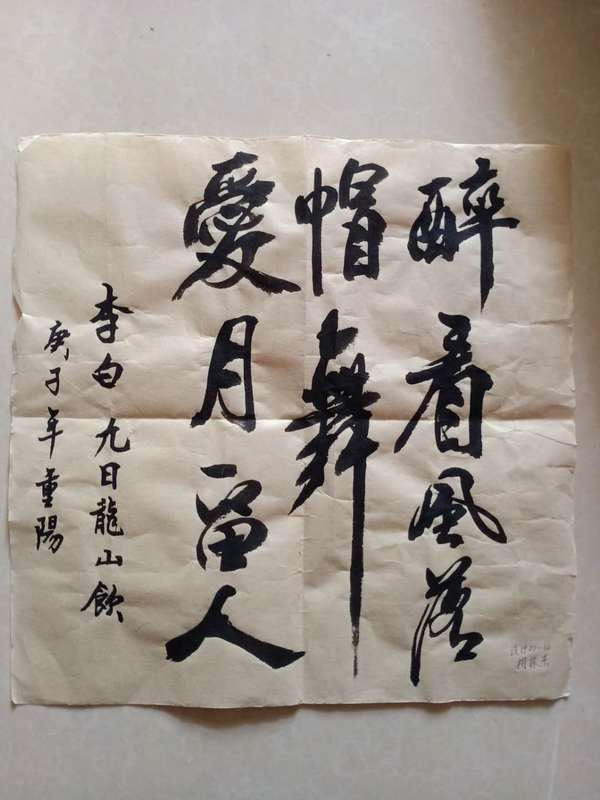 醉看風落
帽舞
愛月留人
李白九日龍山飲
庚子年重陽